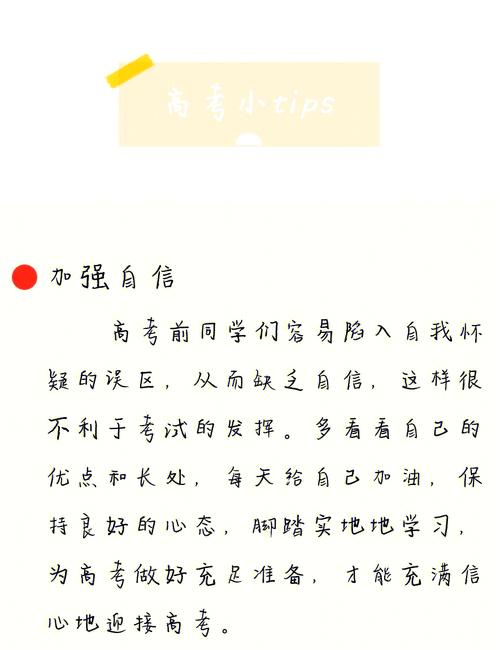 高考小tips
加强自信
高考前同学们容易陷入自我怀
疑的误区，从而缺乏自信，这样很
不利于考试的发挥。多看看自己的
优点和长处，每天给自己加油，保
持良好的心态，脚踏实地地学习，
为高考做好充足准备，才能充满信
心地迎接高考。